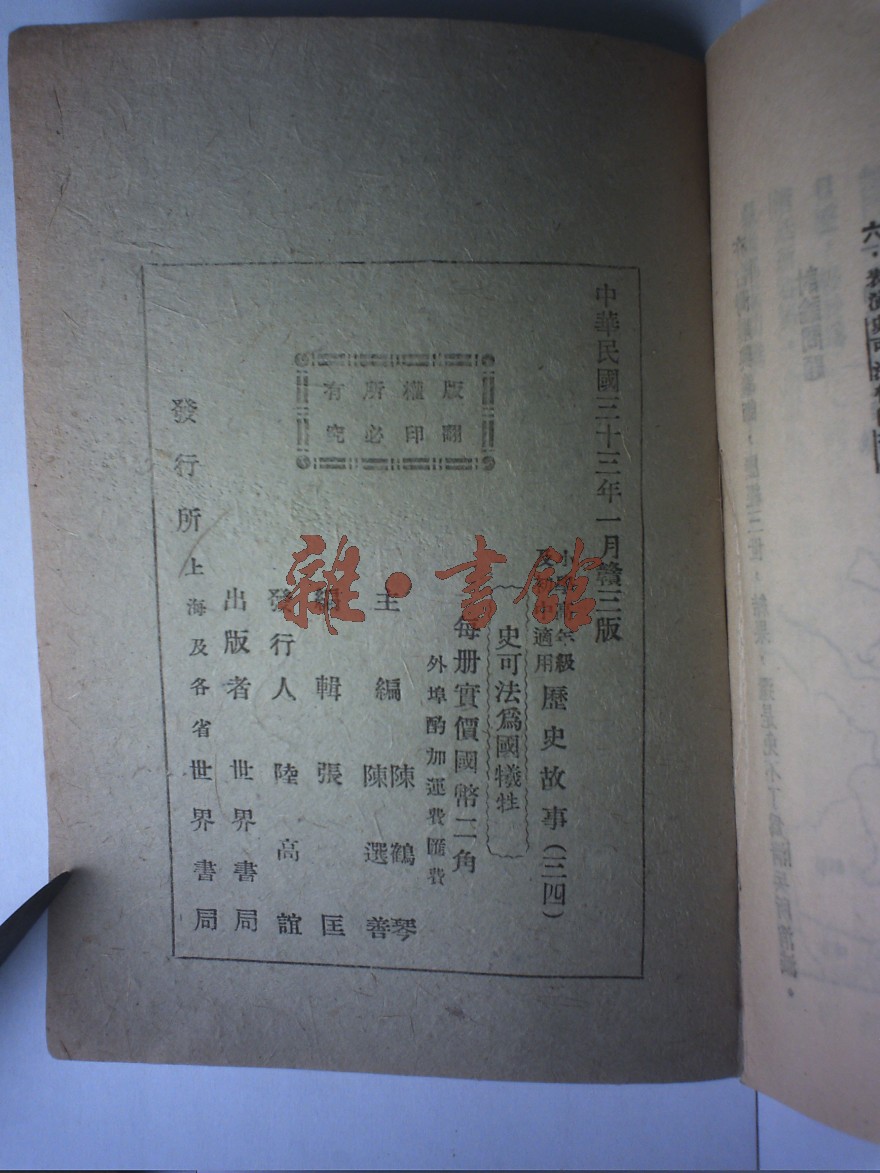 中華民國三十三年一月贛三版
小學高年級
及初中適用
歷史故事(三四)
史可法爲國犧牲
每册實價國幣二角
外埠酌加運費匯費
版權所有
翻印必究
主編 陳鶴琴
陳選善
編輯 張匡
發行人 陸高誼
出版者 世界書局
發行所 上海及各省世界書局
雜·書館